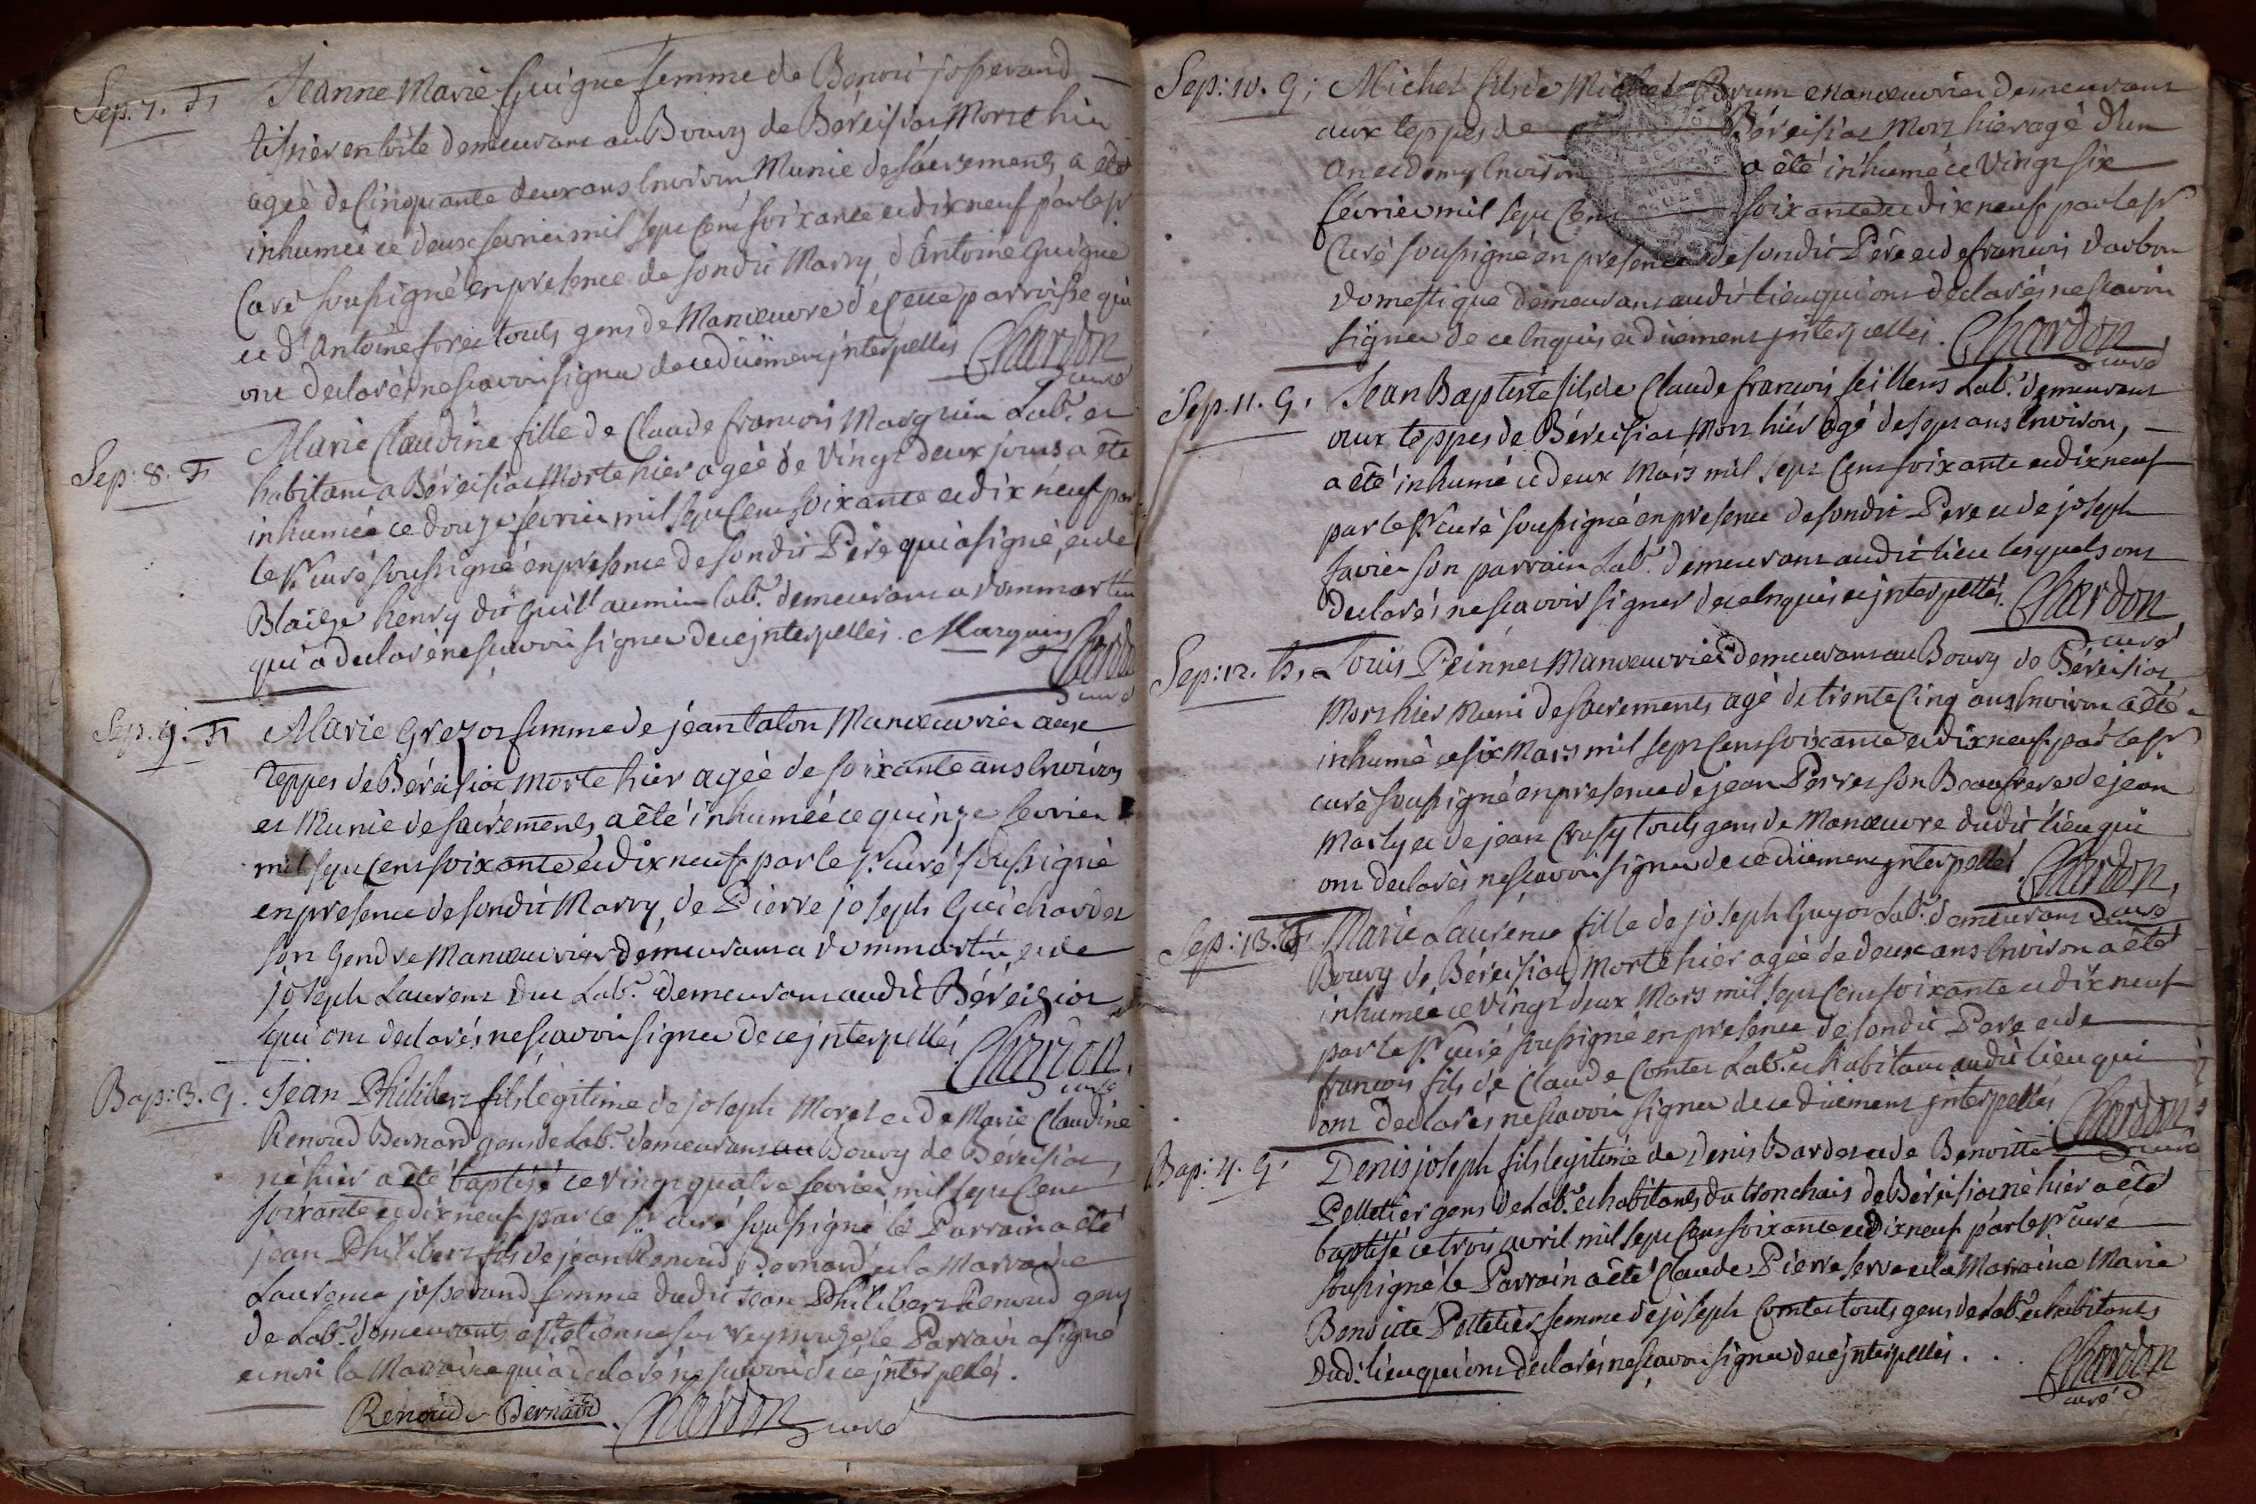 Sep: 7. F,
Jeanne Marie Guigue femme de Benoit josserand
tissier en toile demeurans au Bourg de Béréisiat Morte hier
agée de Cinquante deux ans Environ Munie de sacrements, a été
inhumée ce deux fevrier mil sept Cens soixante et dix neuf par le sr
Curé soussigné en presence de sondit Marry, d'Antoine Guigue
et d'Antoine forêt touts gens de Manœuvre de Cette parroisse qui
ont declarés ne scavoir signer de ce düement jnterpellés Chardon
curé
Sep: 8. F,
Marie Claudine fille de Claude francois Marguin Labr. et
habitant a Béréisiat Morte hier agée de Vingt deux jours a été
inhumée ce douze fevrier mil sept Cens soixante et dix neuf par
le sr curé soussigné en presence de sondit Père qui a signé, et de
Blaise henry dit Guillaumin labr. demeurans a dommartin
qui a declaré ne scavoir signer de ce jnterpellés. Marguin Chardon
curé
Sep. 9. F,
Marie Grezot femme de jean talon Manœuvrier aux
teppes de Béréisiat Morte hier agée de soixante ans Environ
et Munie de sacrements, a été inhumée ce quinze fevrier
mil sept Cens soixante et dix neuf par le sr. curé soussigné
en presence de sondit Marry, de Pierre joseph Guichardet
son Gendre Manœuvrier demeurans a dommartin, et de
joseph Laurent Duc Labr. demeurans audit Béréisiat
qui ont declarés ne scavoir signer de ce jnterpellés Chardon
curé
Bap: 3. G.
Jean Philibert fils legitime de joseph Morel et de Marie Claudine
Renoud Bernard gens de Labr. demeurans au Bourg de Béréisiat
né hier a été baptisé ce vingt quatre fevrier mil sept Cens
soixante et dix neuf par le sr curé soussigné le Parrain a été
jean Philibert fils de jean Renoud Bernard et la Marraine
Laurence josserand femme dudit jean Philibert Renoud gens
de Labr. demeurants a st etienne sur reyssouze le Parrain a signé
et non la Marraine qui a declaré ne scavoir de ce jnterpellés.
Renoud Bernard Chardon curé
Sep: 10. G,
Michel fils de Michel Brun Manœuvrier demeurans
aux teppes de Béréisiat Mort hier agé d'un
an et demy Environ a été inhumé ce Vingt six
fevrier mil sept Cens soixante et dix neuf par le sr
Curé soussigné en presence de sondit Père et de francois darbon
domestique demeurans audit lieu qui ont declarés ne scavoir
signer de ce Enquis et düement jnterpellés. Chardon
curé
Sep. 11. G,
Jean Baptiste fils de Claude francois feillens Labr. demeurans
aux teppes de Béréisiat Mort hier agé de sept ans Environ,
a été inhumé ce deux Mars mil sept Cens soixante et dix neuf
par le sr. curé soussigné en presence de sondit Pere et de joseph
favier son parrain Labr. demeurans audit lieu lesquels ont
declarés ne scavoir signer de ce Enquis et jnterpellés. Chardon
curé
Sep: 12. h,
Louis Peinnet Manœuvrier demeurans au Bourg de Béréisiat
Mort hier Muni de sacrements agé de trente Cinq ans Environ a été
inhumé ce six Mars mil sept Cens soixante et dix neuf par le sr
curé soussigné en presence de jean Perret son Beaufrere de jean
Marly et de jean Crusy touts gens de Manœuvre dudit lieu qui
ont declarés ne scavoir signer de ce düement jnterpellés Chardon,
curé
Sep: 13. F,
Marie Laurence fille de joseph Guyot Labr. demeurans
Bourg de Béréisiat Morte hier agée de deux ans Environ a été
inhumée ce Vingt deux Mars mil sept Cens soixante et dix neuf
par le sr. curé soussigné en presence de sondit Pere et de
francois fils de Claude Comtet Labr. et habitans audit lieu qui
ont declarés ne scavoir signer de ce düement jnterpellés Chardon
curé
Bap: 4. G,
Denis joseph fils legitime de Denis Bardet et de Benoitte
Pelletier gens de Labr. et habitants du tronchais de Béréisiat né hier a été
baptisé ce trois avril mil sept Cens soixante et dix neuf par le sr curé
soussigné le Parrain a été Claude Pierre serve et la Marraine Marie
Benoitte Pelletier femme de joseph Comtet touts gens de Labr. et habitants
dud. lieu qui ont declarés ne scavoir signer de ce jnterpellés. Chardon
curé